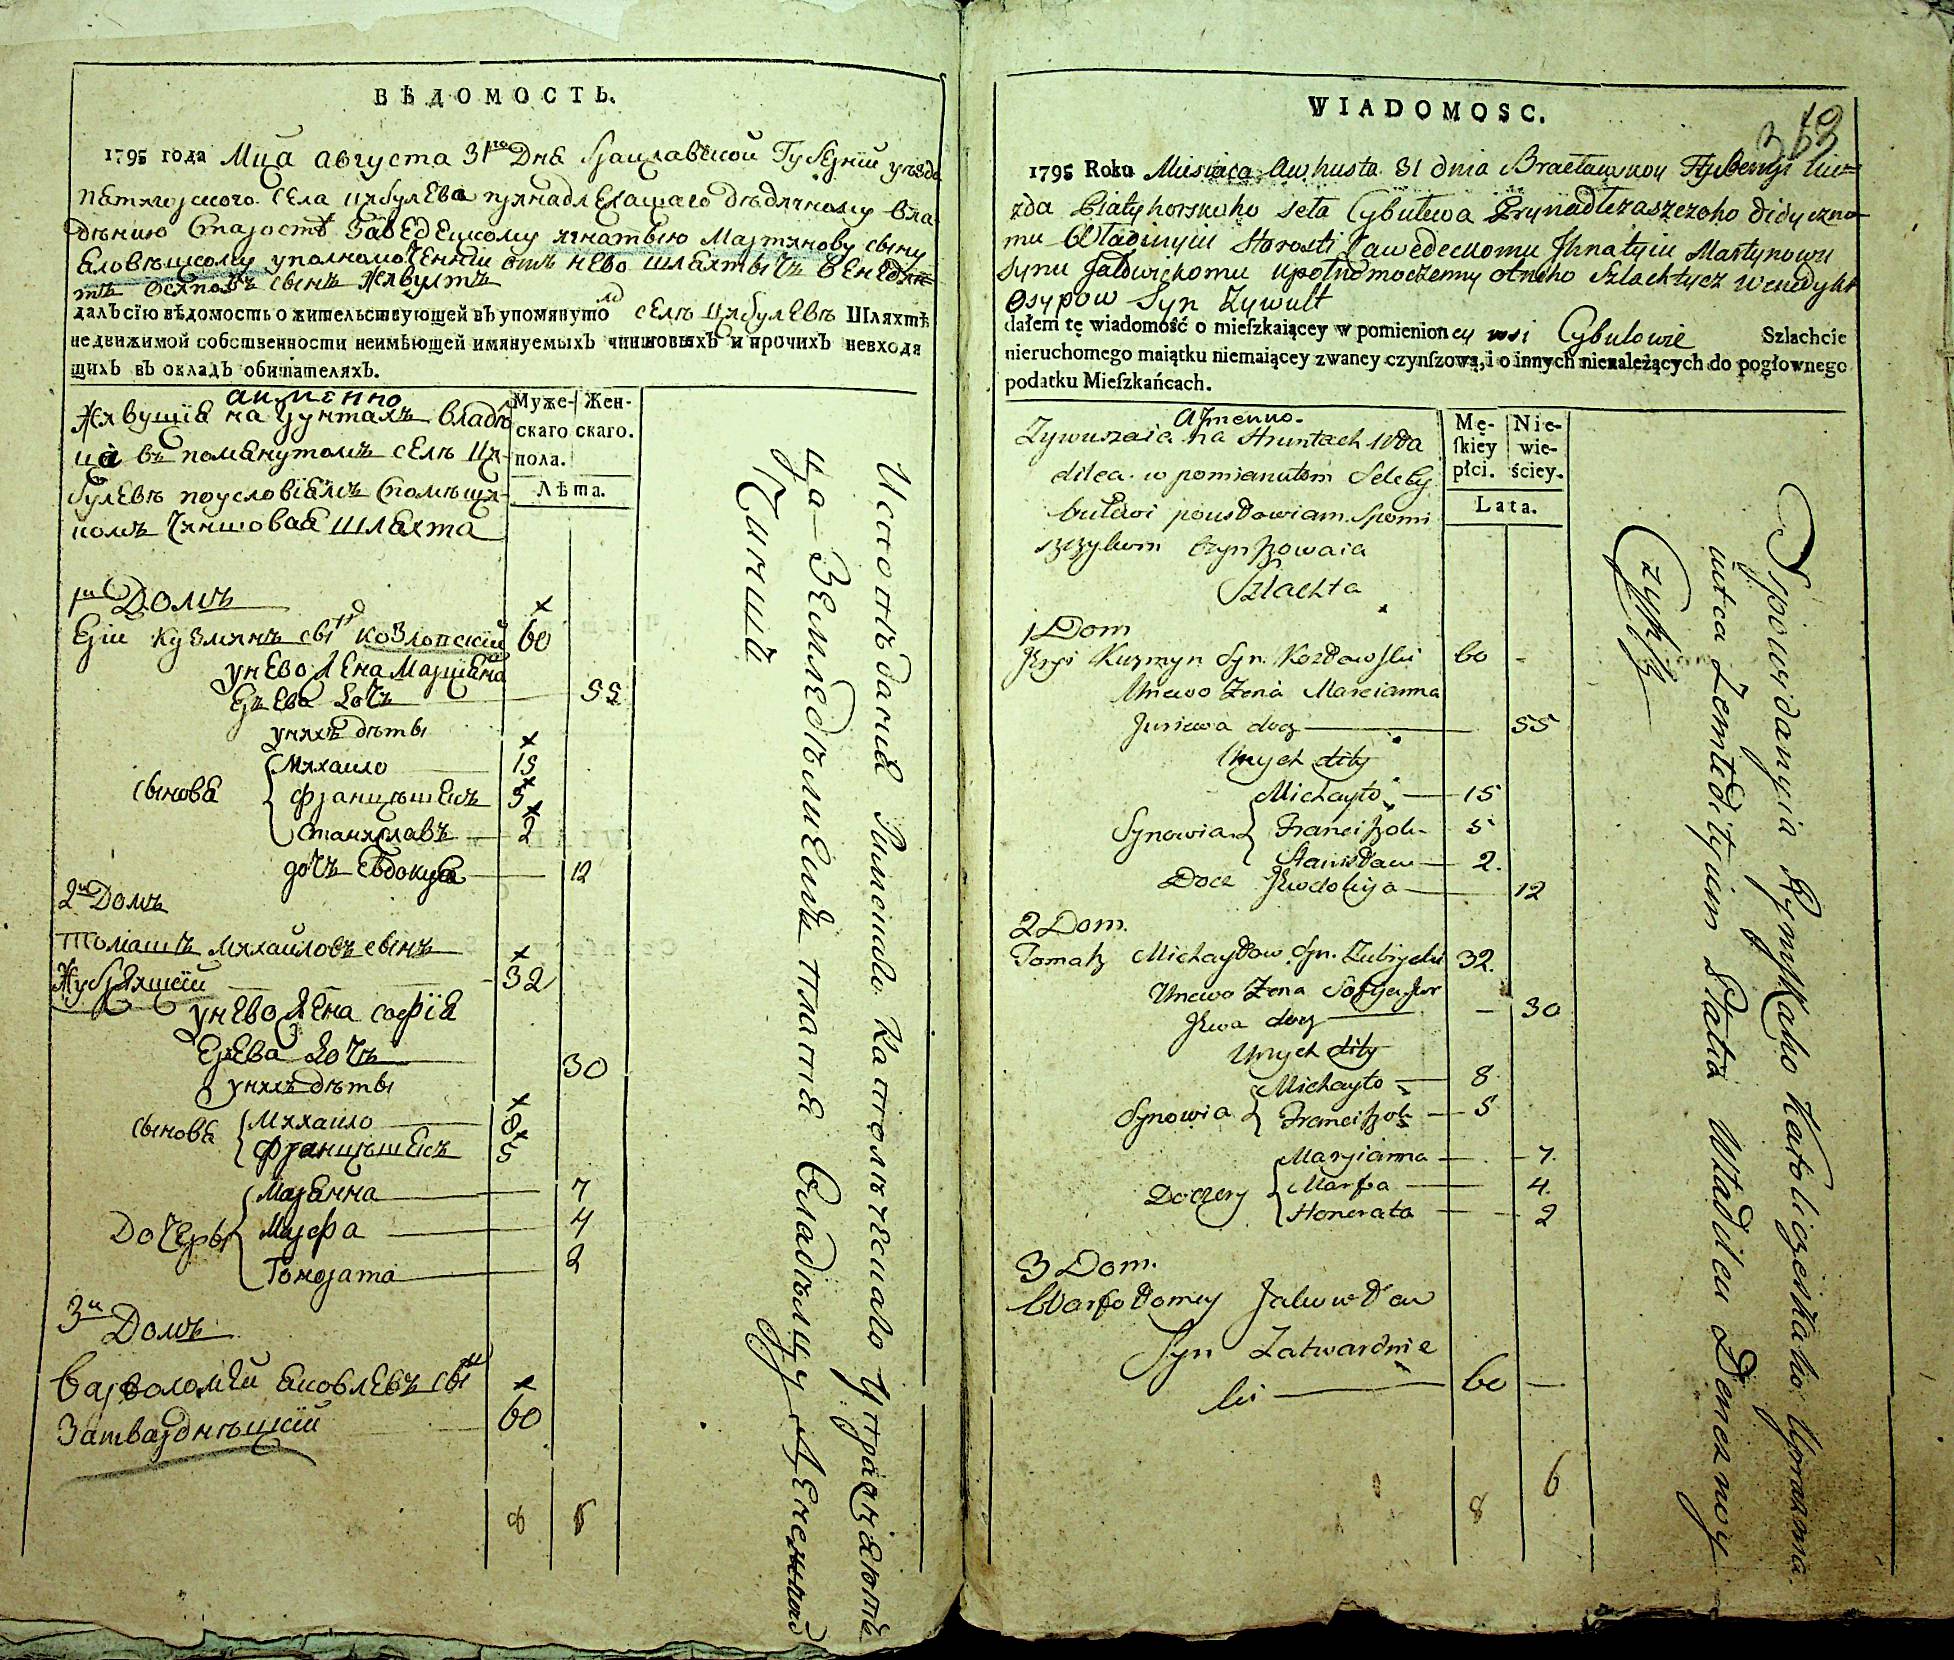 ВѢДОМОСТЬ.
1795 года Мца августа 31го Дня Браславской Губернїи уезда
пятигорского села цибулева принадлежащаго дѣдичному вла
дѣнию Старостѣ Заведецкому игнатию Мартинову сину
яловицкому уполномоченнїи отъ нево шляхтичъ Венедик
тъ осиповъ синъ Живултъ
далъ сїю вѣдомость о жительствующей въ упомянуто селѣ Цибулевѣ Шляхтѣ
недвижимой собственности неимѣющей имянуемыхъ чиншовыхъ и прочихъ невходя
щихъ въ окладъ обишателяхъ.
аименно
Живущия на грунтахъ владѣ
ца въ помянутомъ селѣ Ци
булевѣ поусловіямъ Спомѣщи
комъ Чиншовая шляхта
Муже- Жен-
скаго скаго.
пола.
Лѣта.
1й Домъ
Ерїи Кузминъ снъ Козловскїй 60
унево Жена Марциана
Ерева Дочъ 55
унихъ дѣти
Сынова
Михаило 15
Францишекъ 5
Станиславъ 2
дочъ Евдокия 12
2й Домъ
Томашъ Михайловъ синъ
Жубрицкїй 32
унево Жена софїя
Ерева Дочъ 30
унихъ дѣти
Сынова
Михаило 8
Францишекъ 5
Дочеры
Марянна 7
Марфа 4
Гонората 2
3й Домъ
Варфоломей Яковлевъ снъ
Затварднѣцкїй 60
8 6
Исповѣданїя Римскаво Католическаво Упражняюття
ца Земледѣлиемъ платя Владѣлцу Денежной
Чиншъ
WIADOMOSC.
1795 Roku Miesiaca Awhusta 31 dnia Bracławskoy Hubernji Uie=
zda Piatyhorskoho seła Cybulewa Prynadłeżaszczoho didyczno=
mu Władiniju Starosti Zawedeckomu Ihnatyiu Martynowu
Synu Jałowickomu upołnomoczenny otneho Szlachtycz Wenedykt
Osypow Syn Zywult
dałem tę wiadomość o mieſzkaiącey w pomienioney wsi Cybulowie Szlachcie
nieruchomego maiątku niemaiącey zwaney czynſzową, i o innych nienależących do pogłownego
podatku Mieſzkańcach.
Aimenno.
Zywuszczaia na Hruntach Wła
dilca w pomianutom Sele Cy
bulewi pousłowiam Spomi
szczykom Czynszowaia
Szlachta
Mę- Nie-
ſkiey wie-
płci. ściey.
Lata.
1 Dom
Jeryi Kuzmyn Syn. Kozłowski 60
Unewo Zena Marcianna
Juriewa docz 55
Unych dity
Synowia
Michayło 15
Franciszok 5
Stanisław 2.
Docz Jewdokija 12
2 Dom.
Tomasz Michayłow Syn. Zubrycki 32.
Unewo Zena Sofija Jur
Jewa docz 30
Unych dity
Synowia
Michayło 8
Franciszok 5
Doczery
Maryianna 7.
Marfa 4.
Honorata 2
3 Dom.
Warfołomey Jakowlew
Syn Zatwardnie
cki 60
8 6
Ispowidanyia Rymskaho Katoliczeskaho Uprazna
iutca Zemledilyiem Płatia Władilcu Deneznoy
Czynsz